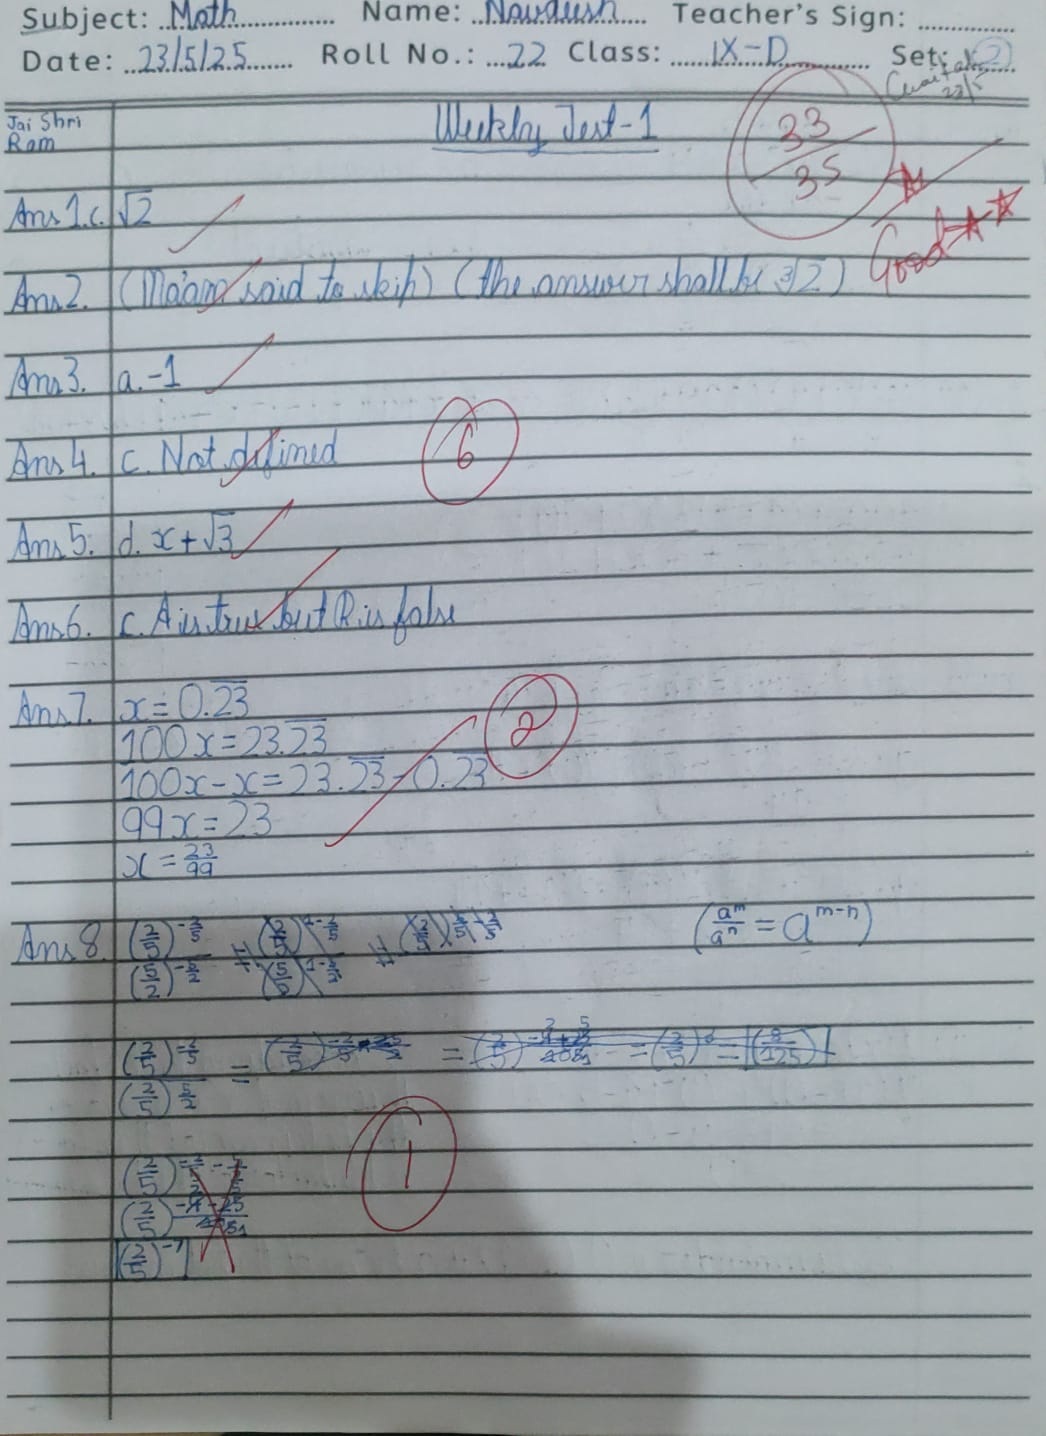 Subject: Math Name: Navdeesh Teacher's Sign:
Date: 23/5/25 Roll No.: 22 Class: IX-D Set: 2
Jai Shri
Ram
Weekly Test-1
33/35
Good
Ans 1. c. √2
Ans 2. (Ma'am said to skip) (the answer shall be 3√2)
Ans 3. a. -1
Ans 4. c. Not defined
6
Ans 5. d. x + √3
Ans 6. c. A is true but R is false
Ans 7. x = 0.2̅3̅
100x = 23.2̅3̅
100x - x = 23.2̅3̅ - 0.2̅3̅
99x = 23
x = 23/99
2
Ans 8. (a^m/a^n = a^(m-n))
1
(2/5)^-7